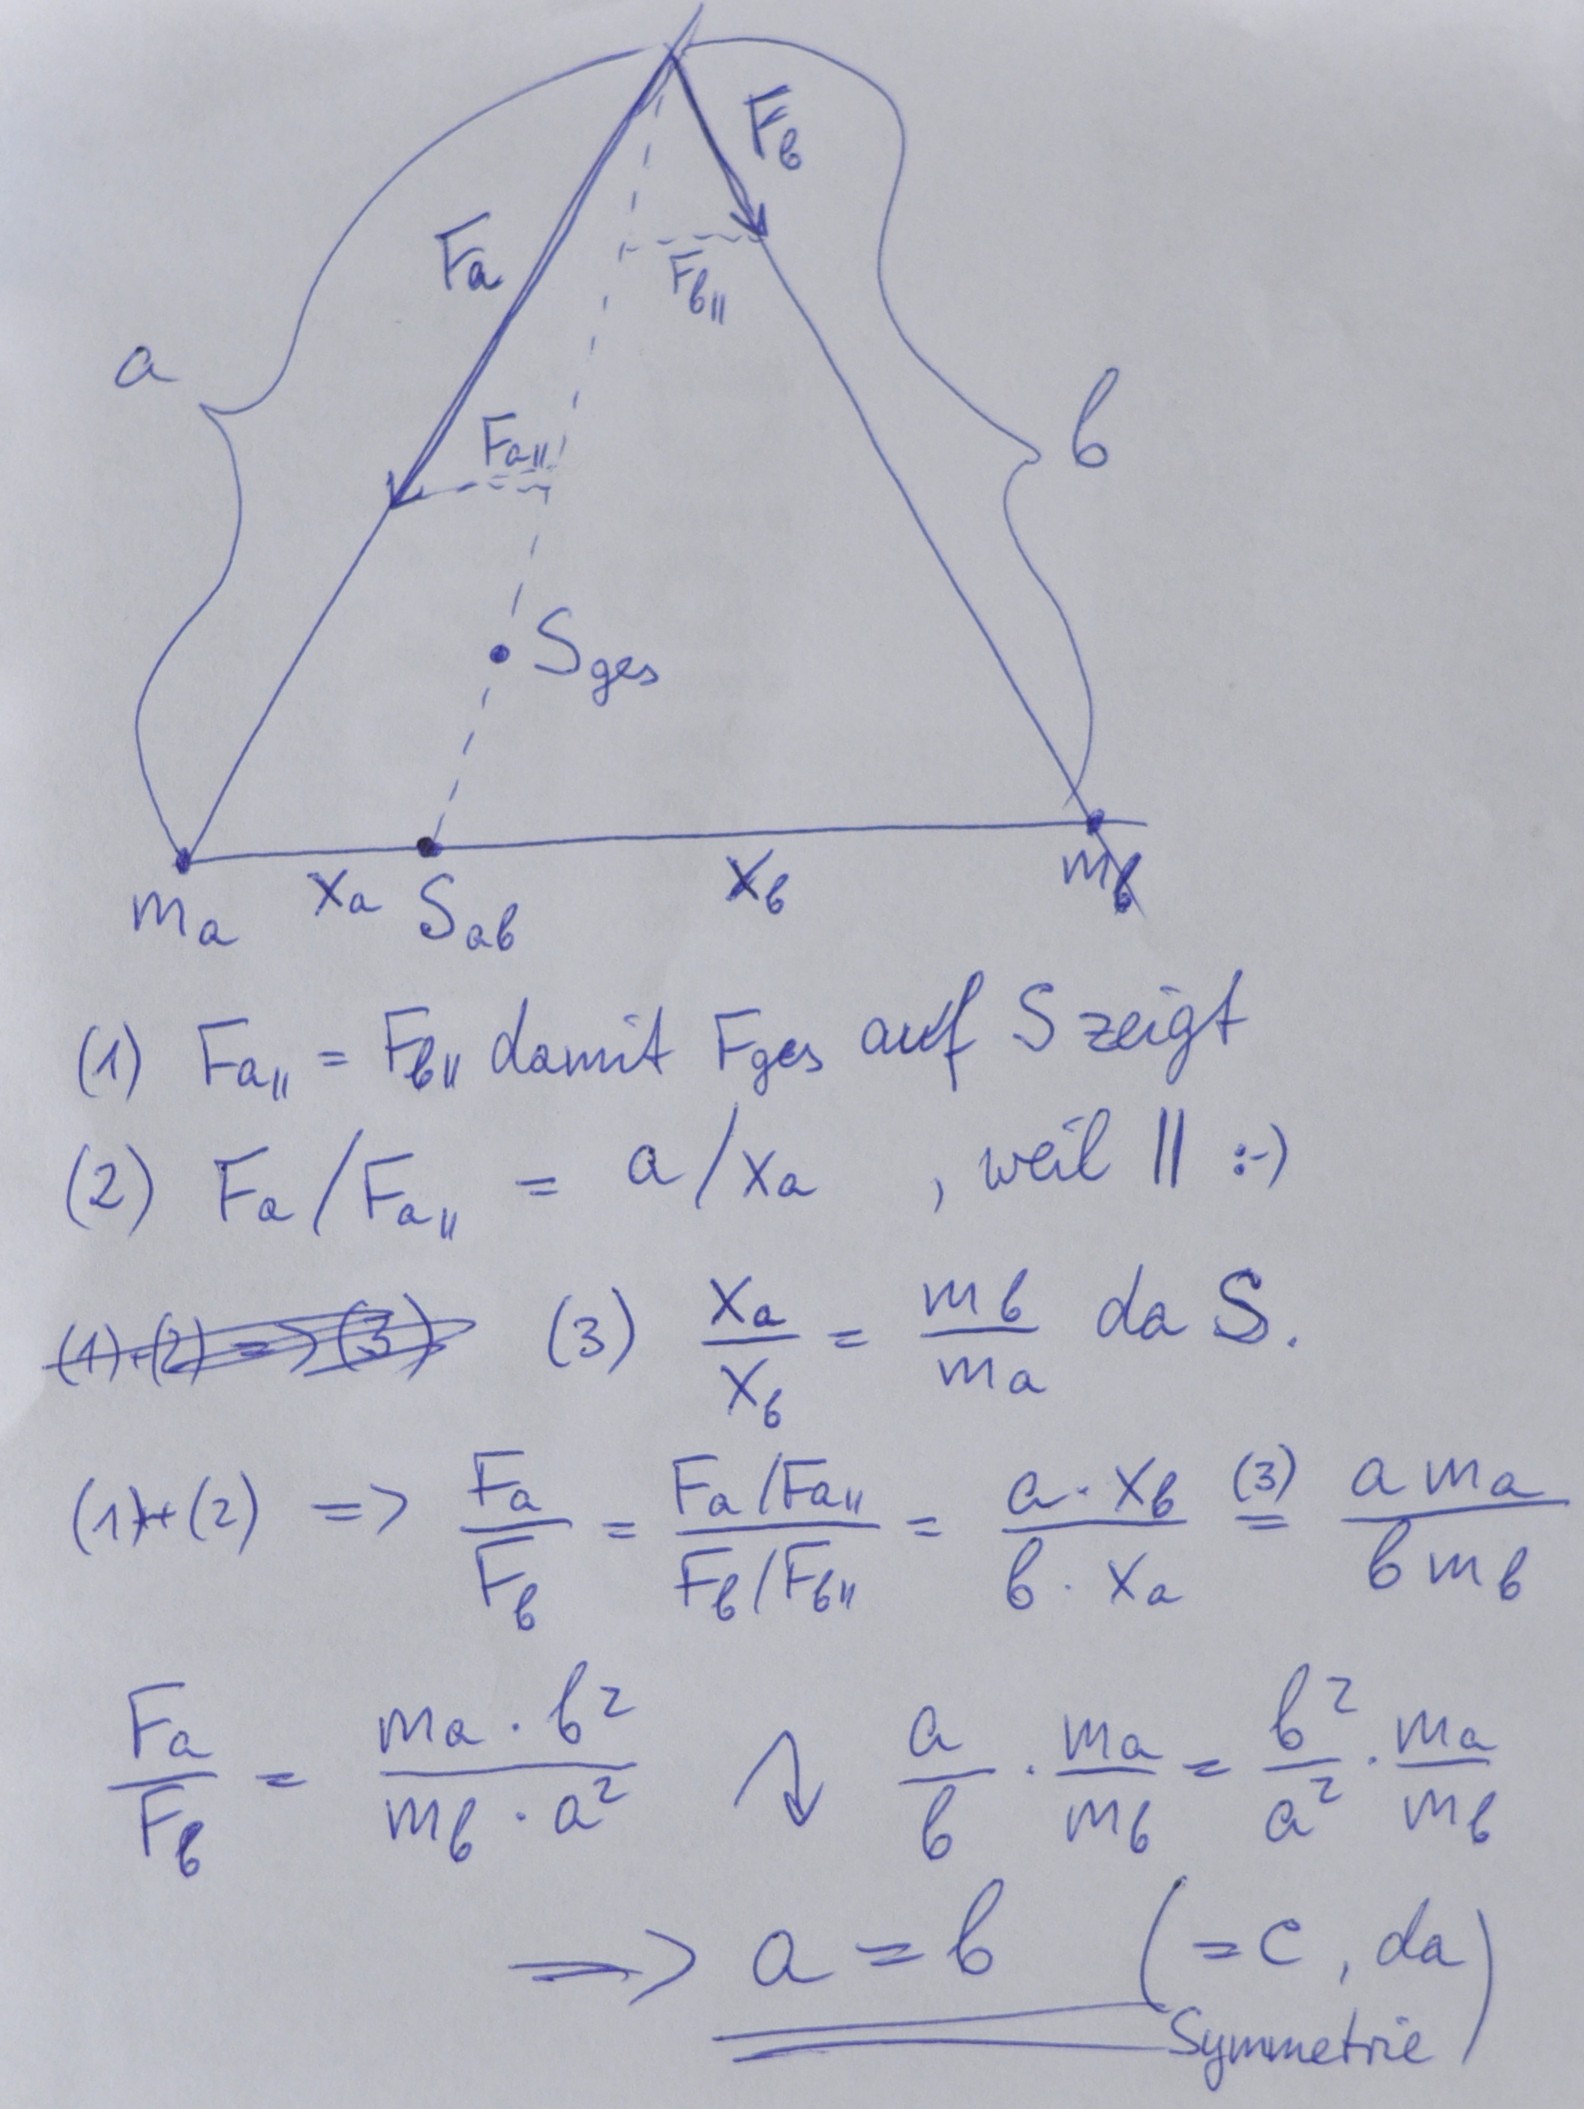 F_b
F_a
F_b||
a
F_a||
b
S_ges
m_a x_a S_ab x_b m_b
(1) F_a|| = F_b|| damit F_ges auf S zeigt
(2) F_a / F_a|| = a / x_a , weil || :-)
(1)+(2) => (3) (3) x_a / x_b = m_b / m_a da S.
(1)+(2) => F_a / F_b = (F_a / F_a||) / (F_b / F_b||) = (a · x_b) / (b · x_a) (3)= (a m_a) / (b m_b)
F_a / F_b = (m_a · b²) / (m_b · a²) a / b · m_a / m_b = b² / a² · m_a / m_b
=> a = b (= c, da
Symmetrie)